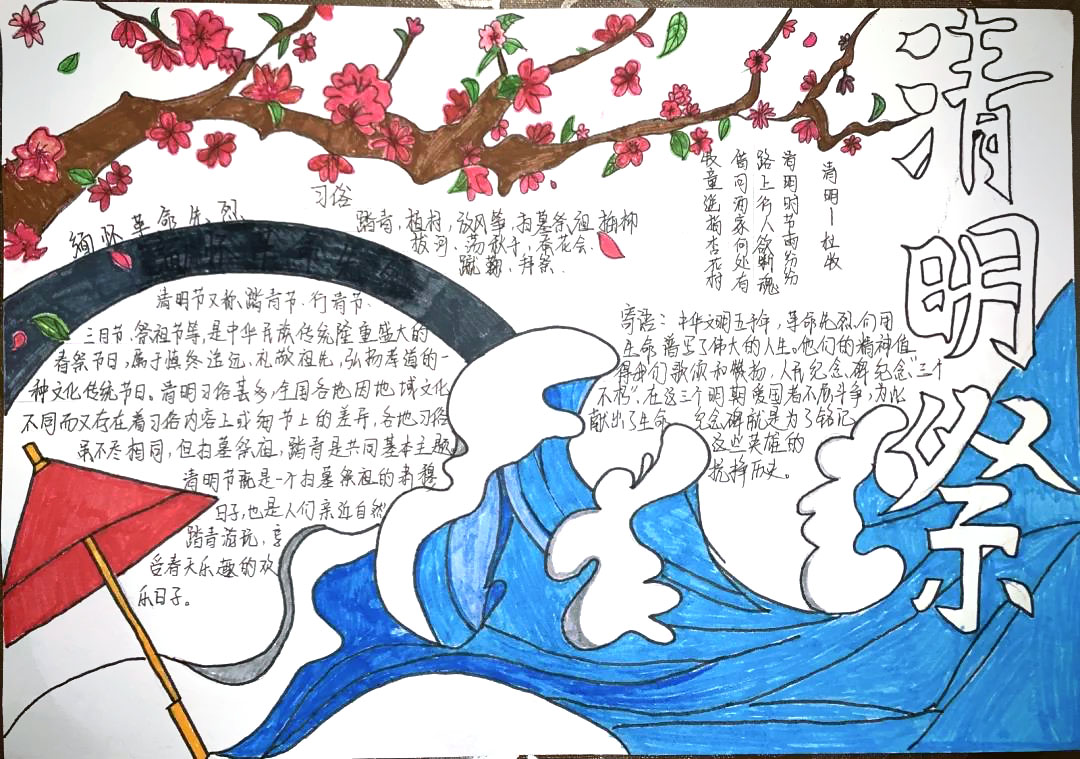 清明祭
缅怀革命先烈
习俗
踏青，植树，放风筝，扫墓祭祖，插柳
拔河、荡秋千，赏花会、
蹴鞠、拜祭、
清明—杜牧
清明时节雨纷纷
路上行人欲断魂
借问酒家何处有
牧童遥指杏花村
清明节又称、踏青节、行清节、
三月节、祭祖节等，是中华民族传统隆重盛大的
春祭节日，属于慎终追远、礼敬祖先，弘扬孝道的一
种文化传统节日。清明习俗甚多，全国各地因地域文化
不同而又存在着习俗内容上或细节上的差异，各地习俗
虽不尽相同，但扫墓祭祖，踏青是共同基本主题。
清明节既是一个扫墓祭祖的肃穆
日子，也是人们亲近自然
踏青游玩，享
受春天乐趣的欢
乐日子。
寄语：中华文明五千年，革命先烈们用
生命谱写了伟大的人生。他们的精神值
得我们歌颂和赞扬，人民纪念碑纪念“三个
不朽”，在这三个时期爱国者不屈斗争，为此
献出了生命 纪念碑就是为了铭记
这些英雄的
抗挣历史。